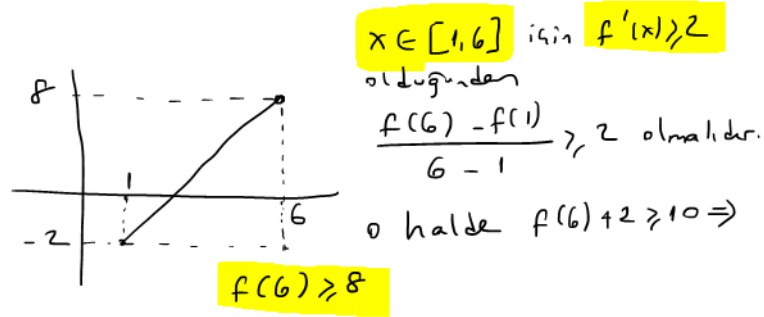 x ∈ [1,6] için f'(x) ≥ 2
olduğundan
f(6) - f(1)
6 - 1
≥ 2 olmalıdır.
o halde f(6) + 2 ≥ 10 ⇒
f(6) ≥ 8
8
1
6
-2